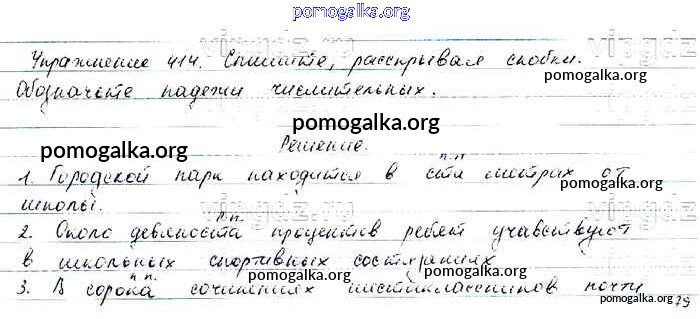 pomogalka.org
Упражнение 414. Спишите, раскрывая скобки.
pomogalka.org
Обозначьте падежи числительных.
pomogalka.org
Решение.
pomogalka.org
п.п.
1. Городской парк находится в ста метрах от
pomogalka.org
школы.
р.п.
2. Около девяноста процентов ребят учавствуют
pomogalka.org
в школьных спортивных состязаниях
pomogalka.org pomogalka.org
п.п.
3. В сорока сочинениях шестиклассников почти
pomogalka.org
79